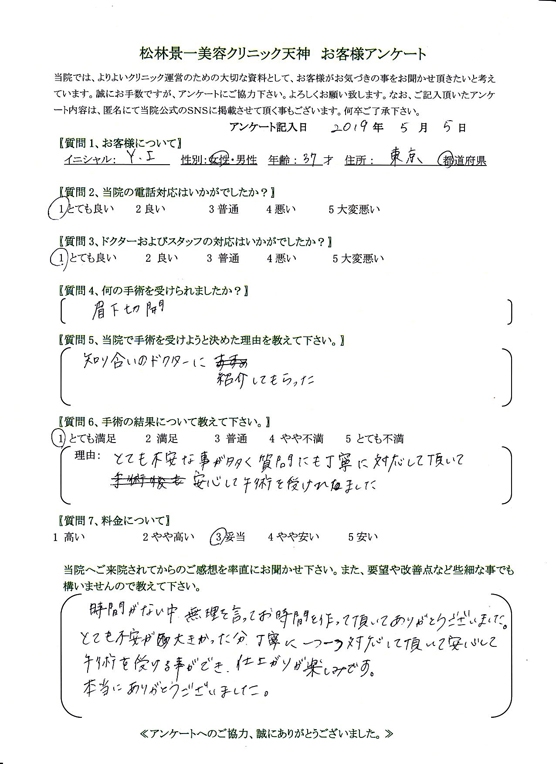 松林景一美容クリニック天神　お客様アンケート
当院では、よりよいクリニック運営のための大切な資料として、お客様がお気づきの事をお聞かせ頂きたいと考え
ています。誠にお手数ですが、アンケートにご協力下さい。よろしくお願い致します。なお、ご記入頂いたアンケ
ート内容は、匿名にて当院公式のSNSに掲載させて頂く事もございます。何卒ご了承下さい。
アンケート記入日　2019 年　5　月　5　日
〖質問１、お客様について〗
イニシャル： Y.I　性別：女性・男性　年齢：37 才　住所：　東京　都道府県
〖質問２、当院の電話対応はいかがでしたか？〗
1 とても良い　2 良い　3 普通　4 悪い　5 大変悪い
〖質問３、ドクターおよびスタッフの対応はいかがでしたか？〗
1 とても良い　2 良い　3 普通　4 悪い　5 大変悪い
〖質問４、何の手術を受けられましたか？〗
眉下切開
〖質問５、当院で手術を受けようと決めた理由を教えて下さい。〗
知り合いのドクターに
紹介してもらった
〖質問６、手術の結果について教えて下さい。〗
1 とても満足　2 満足　3 普通　4 やや不満　5 とても不満
理由：　とても不安な事が多く質問にも丁寧に対応して頂いて
安心して手術を受けれました
〖質問７、料金について〗
1 高い　2 やや高い　3 妥当　4 やや安い　5 安い
当院へご来院されてからのご感想を率直にお聞かせ下さい。また、要望や改善点など些細な事でも
構いませんので教えて下さい。
時間がない中 無理を言ってお時間を作って頂いてありがとうございました。
とても不安が大きかった分、丁寧に一つ一つ対応して頂いて安心して
手術を受ける事ができ、仕上がりが楽しみです。
本当にありがとうございました。
≪アンケートへのご協力、誠にありがとうございました。≫